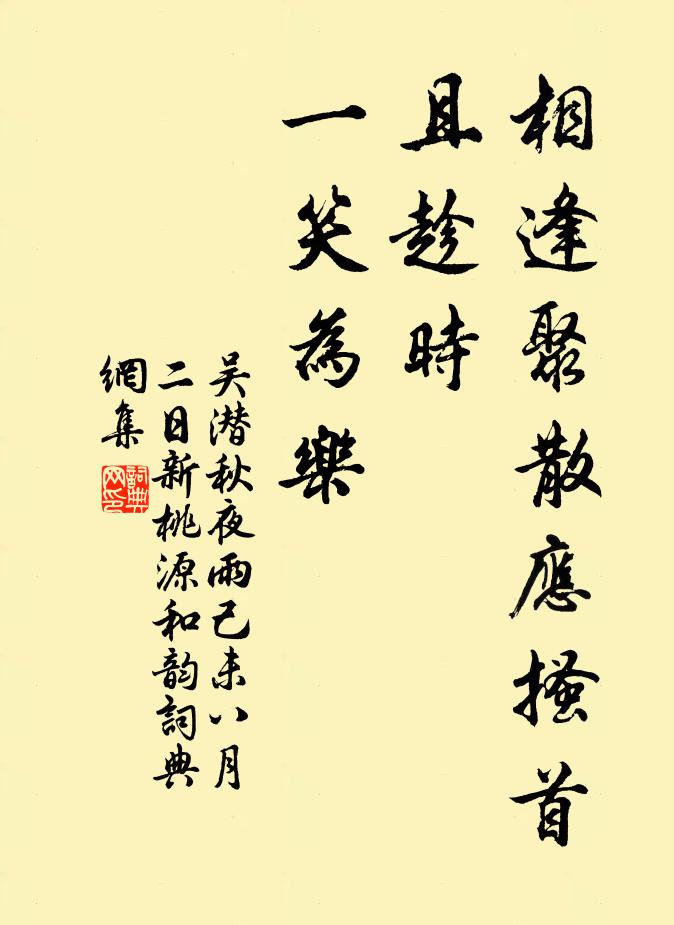 相逢聚散應搔首
且趁時
一笑為樂
吳潛秋夜雨己未八月
二日新桃源和韵詞典
網集
詞典
网印